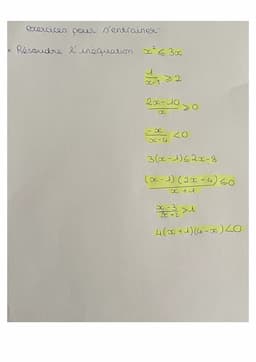 exercices pour s'entraîner
• Résoudre l'inéquation x² ⩽ 3x
1/x² ⩾ 2
2x-10/x ⩾ 0
-x/x-4 < 0
3(x-1) ⩽ 2x-8
(x-1)(2x+4)/x+1 ⩽ 0
x-3/x+2 > 1
4(x+1)(4-x) < 0